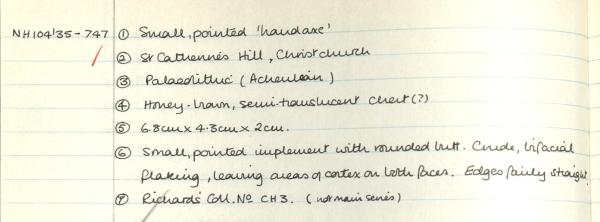 NH104'35-747 ① Small, pointed 'handaxe'
② St Catherines Hill, Christchurch
③ Palaeolithic (Acheulean)
④ Honey-brown, semi-translucent chert(?)
⑤ 6.8cm x 4.3cm x 2cm.
⑥ Small, pointed implement with rounded butt. Crude, bifacial
flaking, leaving areas of cortex on both faces. Edges fairly straight.
⑦ Richards' Coll. No CH3. (not main series)